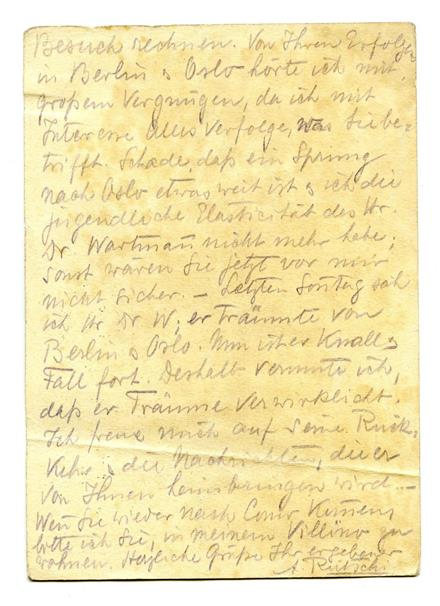 Besuch rechnen. Von Ihren Erfolgen
in Berlin & Oslo hörte ich mit
großem Vergnügen, da ich mit
Interesse alles verfolge, was Sie be-
trifft. Schade, daß ein Sprung
nach Oslo etwas weit ist & ich die
jugendliche Elasticität des Hr.
Dr. Wartman nicht mehr habe;
sonst wären Sie jetzt vor mir
nicht sicher. – Letzten Sontag sah
ich Hr Dr W; er träumte von
Berlin & Oslo. Nun ist er Knall &
Fall fort. Deshalb vermute ich,
daß er Träume verwirklicht.
Ich freue mich auf seine Rück-
kehr & die Nachrichten, die er
von Ihnen heimbringen wird. –
Wenn Sie wieder nach Como kommen,
bitte ich Sie, in meinem Villino zu
wohnen. Herzliche Grüße Ihr ergebener
A. Rütschi